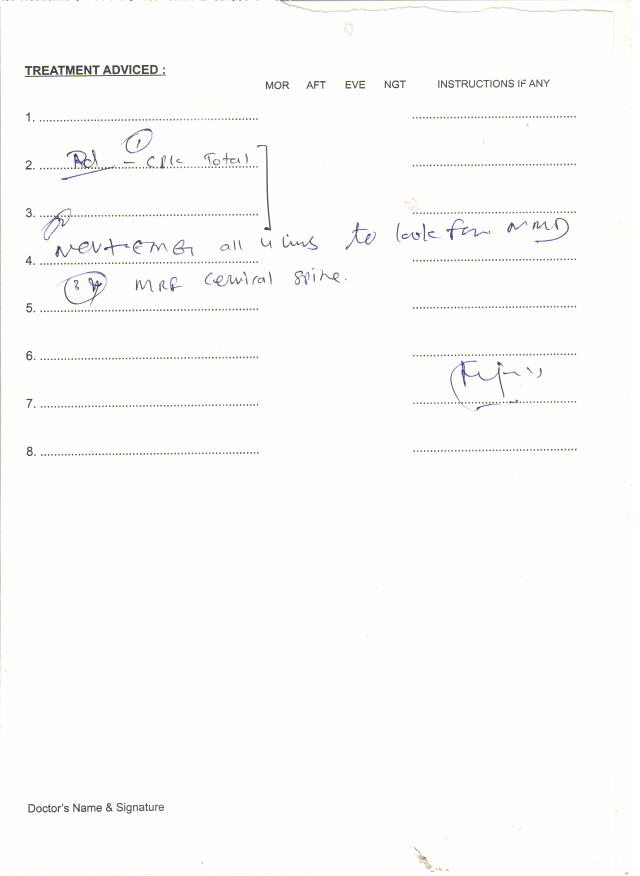 TREATMENT ADVICED :
MOR AFT EVE NGT INSTRUCTIONS IF ANY
1. ........................................ ........................................
① 
2. Ad – CPK Total ........................................
3. ........................................ ........................................
NCV+EMG all 4 limbs to look for MMD
4. ........................................ ........................................
③ MRI cervical spine.
5. ........................................ ........................................
6. ........................................ ........................................
7. ........................................ ........................................
8. ........................................ ........................................
Doctor's Name & Signature